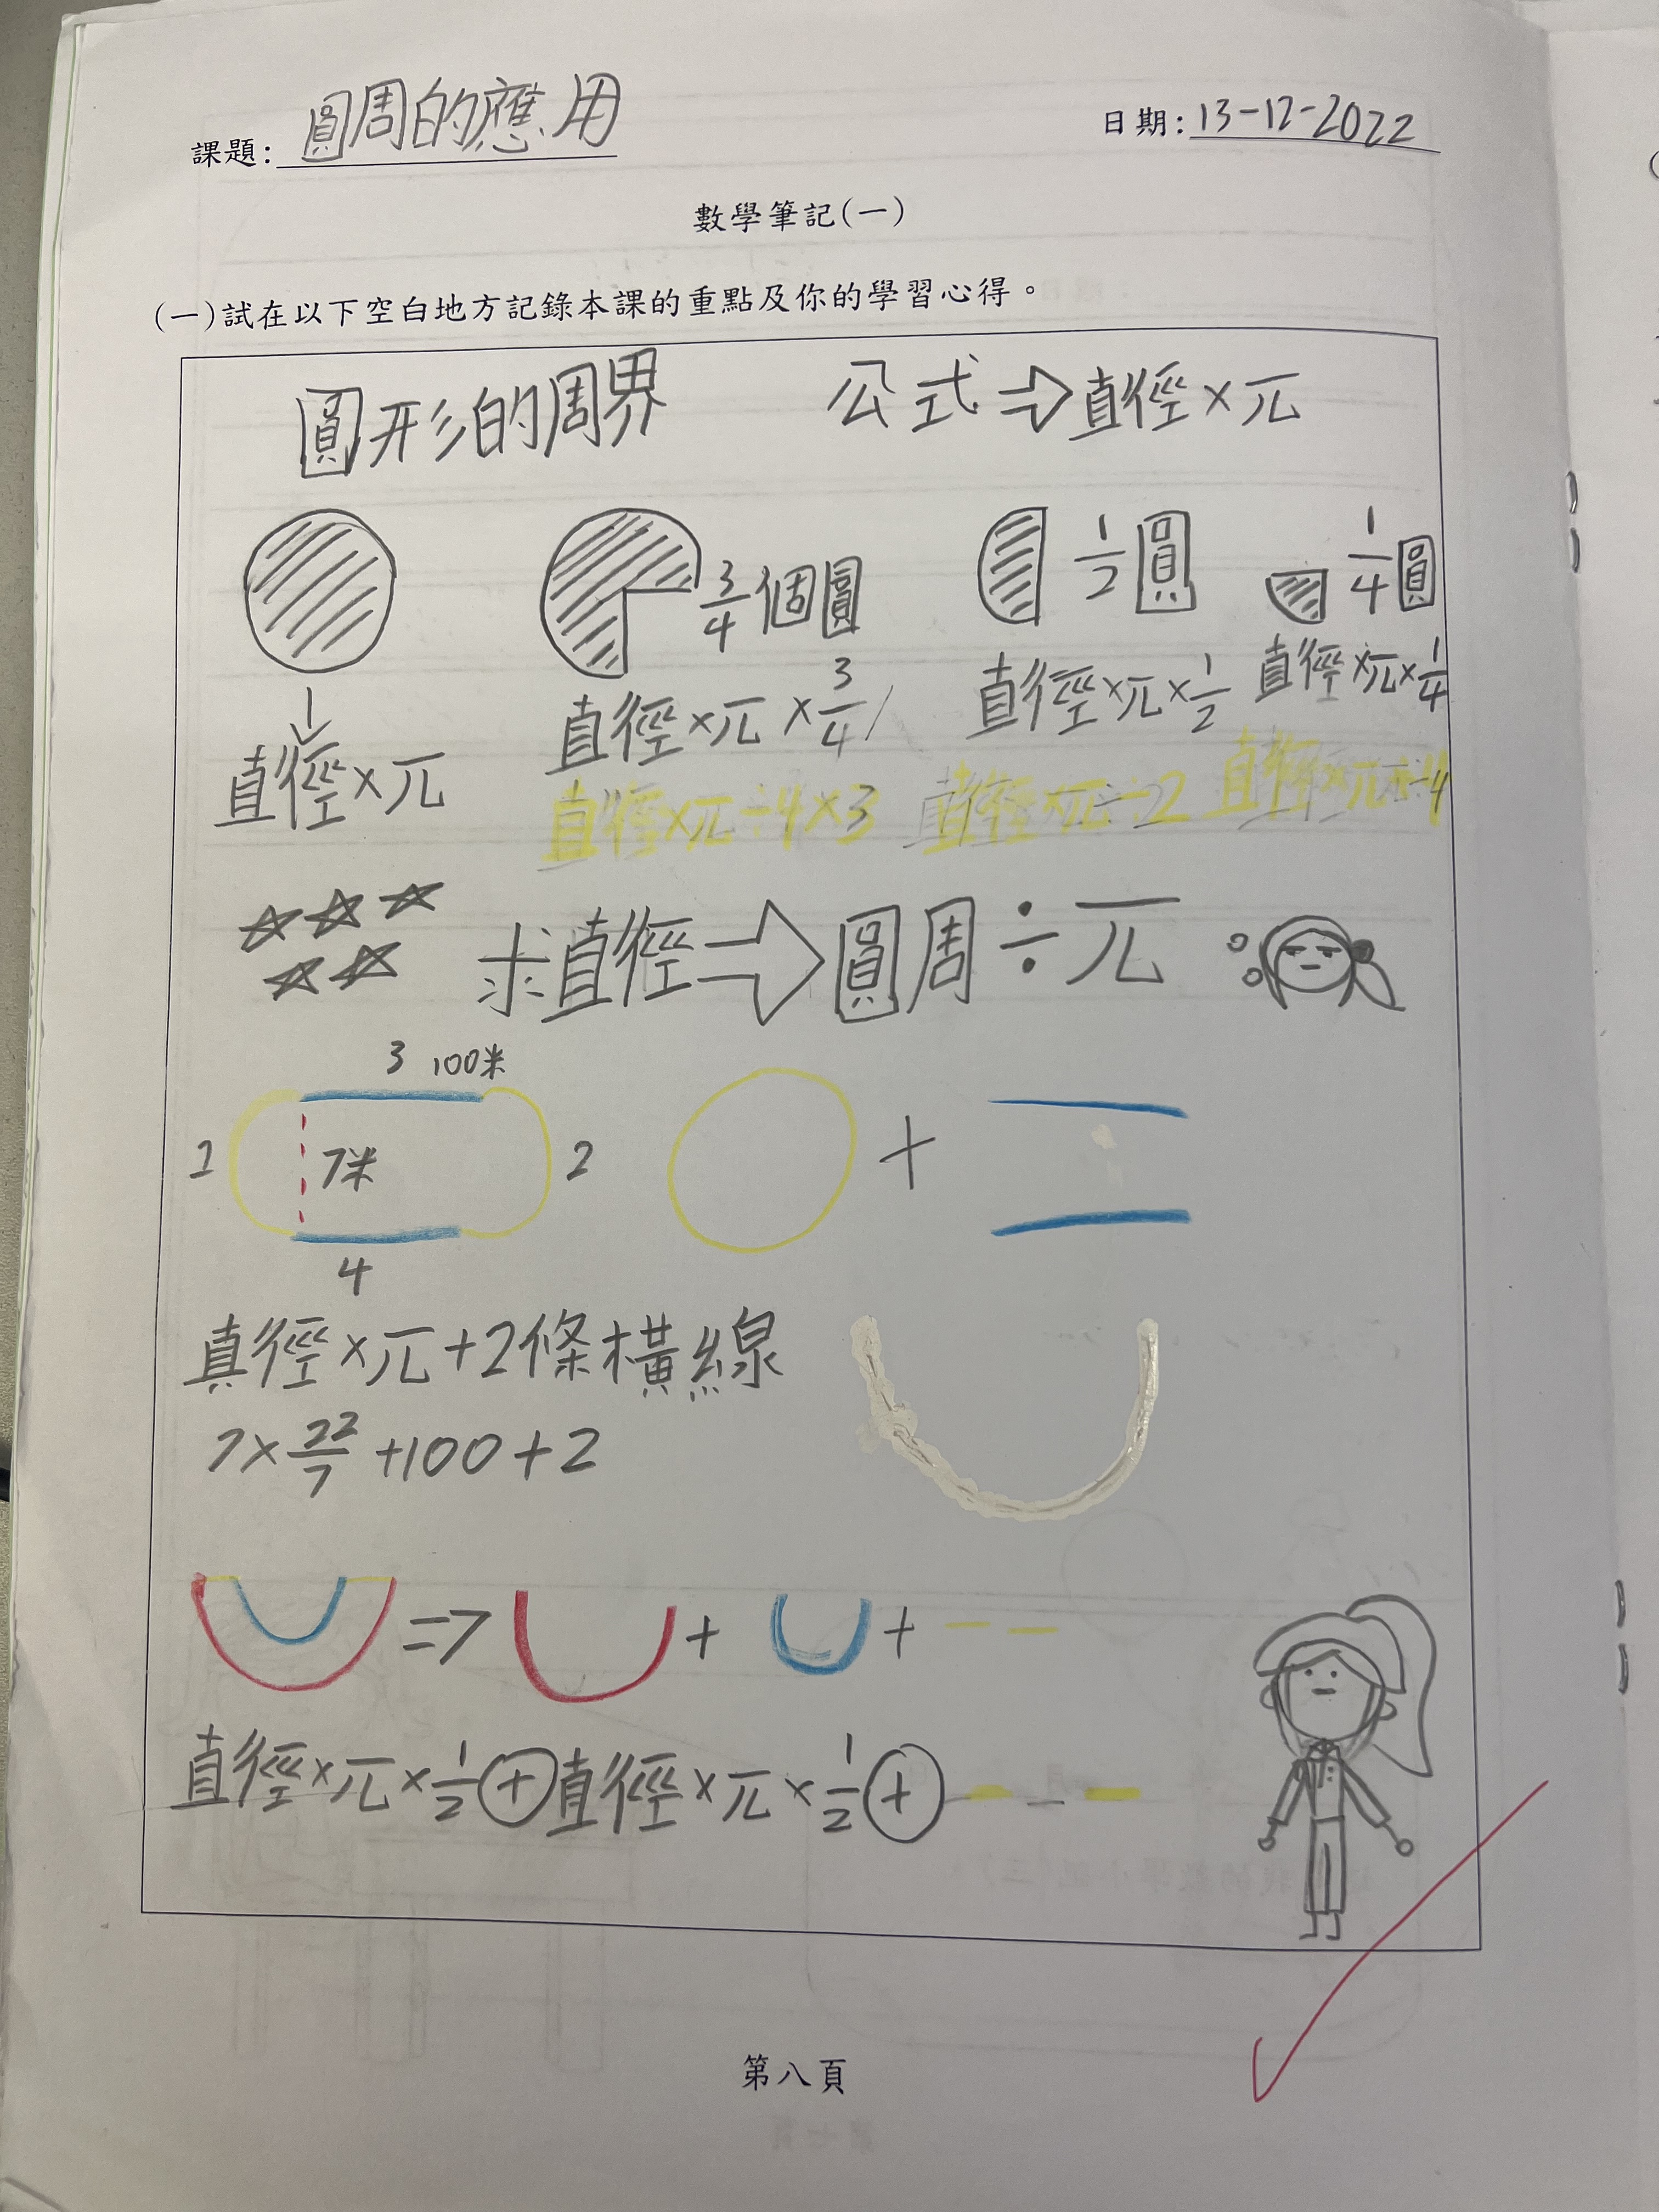 課題: 圓周的應用
日期: 13-12-2022
數學筆記(一)
(一)試在以下空白地方記錄本課的重點及你的學習心得。
圓形的周界 公式⇒直徑×π
3/4個圓 1/2圓 1/4圓
直徑×π 直徑×π×3/4 直徑×π×1/2 直徑×π×1/4
直徑×π÷4×3 直徑×π÷2 直徑×π÷4
求直徑⇒圓周÷π
3 100米
1 7米 2 +
4
直徑×π+2條橫線
7×22/7+100+2
=> + +
直徑×π×1/2+直徑×π×1/2+
第八頁